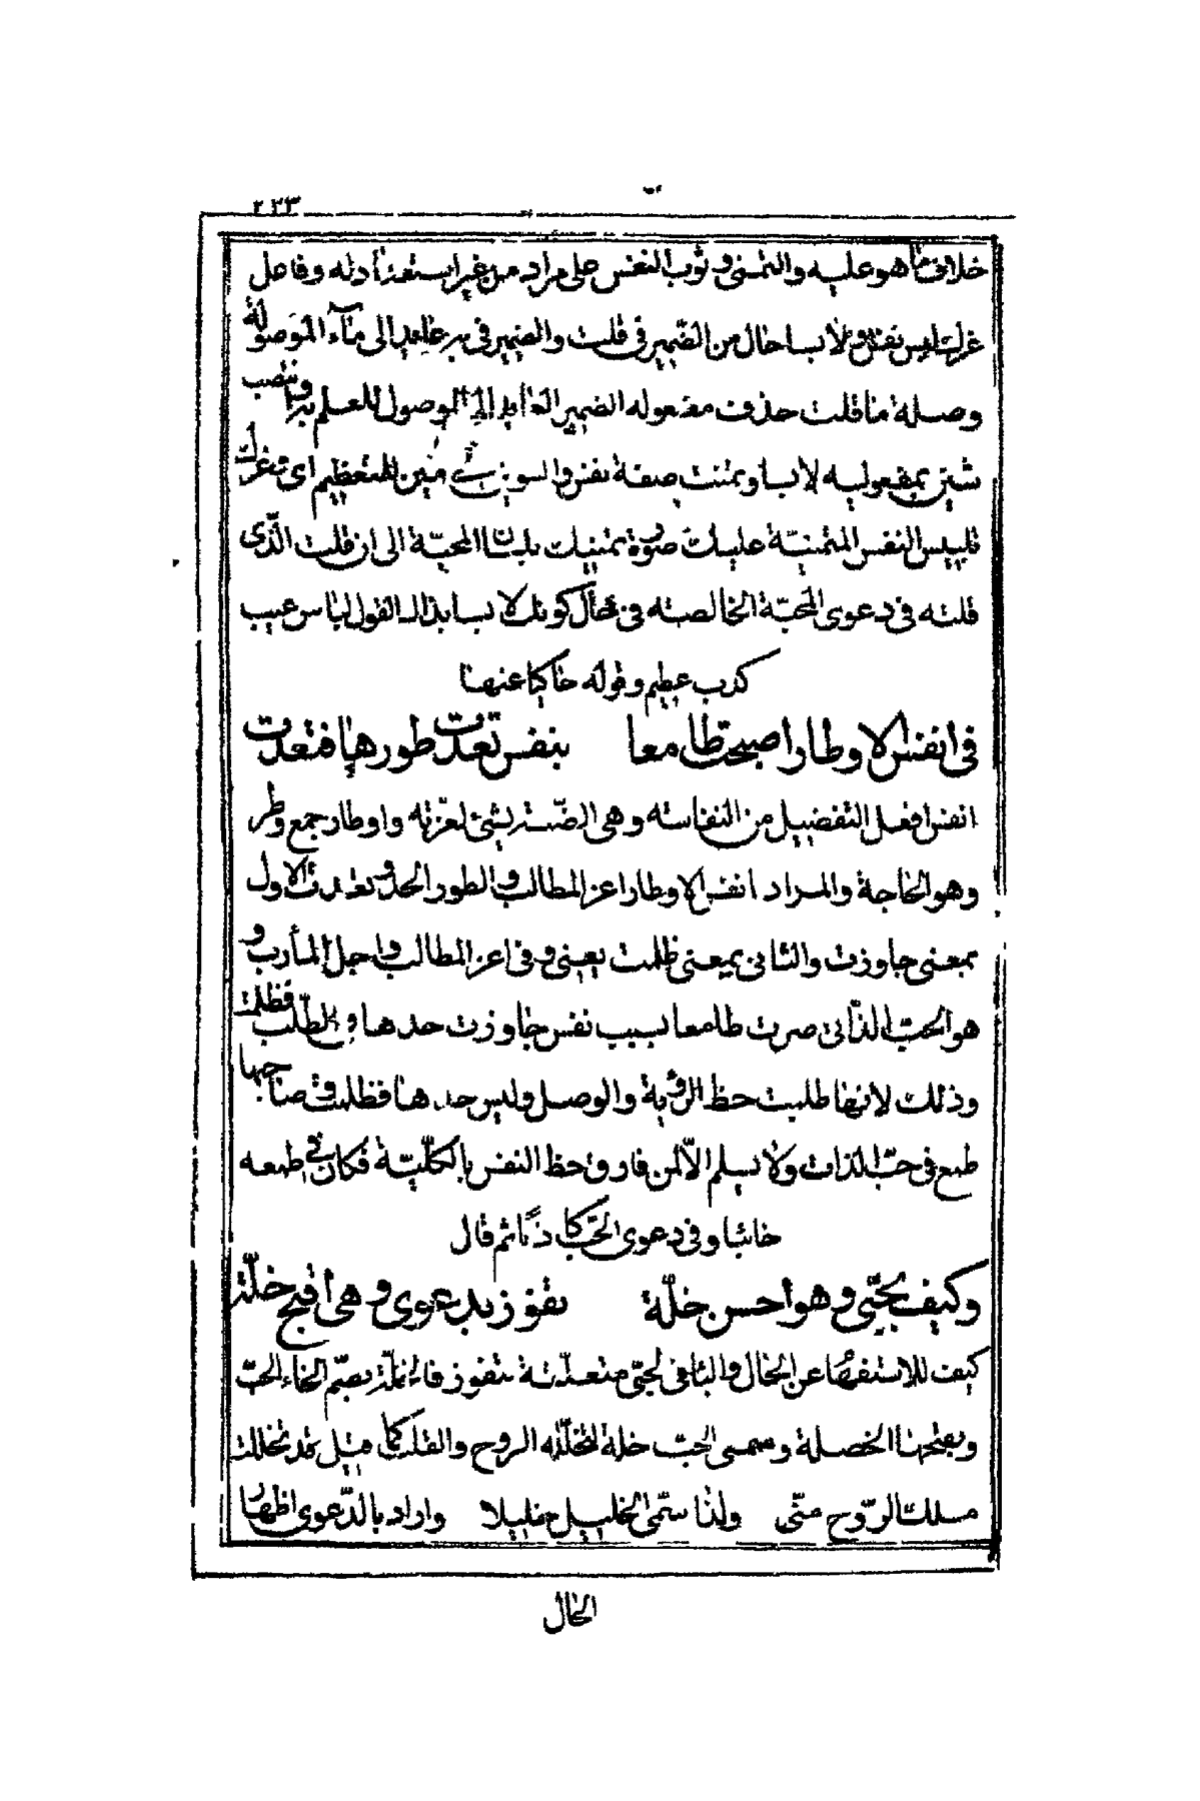 ٢٣٣
خلاف ما هو عليه والتمنى وثوب النفس على مراد من غير استعداد له وفاعل
غرك لبس نفس ولابسا حال من الضمير فى قلت والضمير فى به عايد الى ماء الموصولة
وصلة ما قلت حذف مفعوله الضمير العايد الى الموصول للعلم به وينتصب
شين بمفعوليه لابسا وتمنت صفة نفس والتنوين فى مين للتعظيم اى فغرك
تلبيس النفس المتمنية عليك صورة تمنيك بلسان المحبة الى ان قلت الذى
قلته فى دعوى المحبة الخالصته فى حال كونك لابسا بذلك القول لباس عيب
كذب عظيم وقوله حاكيا عنها
فى انفس الاوطار اصبحت طامعا بنفس تعدت طورها فتعدت
انفس افعل التفضيل من النفاسته وهى الضنة بشئ لعزته واوطار جمع وطر
وهو الحاجة والمراد انفس الاوطار اعز المطالب والطور الحد وتعدت الاول
بمعنى جاوزت والثانى بمعنى ظلمت يعنى وفى اعز المطالب واجل المأرب و
هو الحب الذاتى صرت طامعا بسبب نفس جاوزت حدها فى الطلب فظلمت
وذلك لانها طلبت حظ الرؤية والوصل وليس حدها فظلمت صاحبها
طمع فى حب الذات ولا يسلم الا لمن فارق حظ النفس بالكلية فكان فى طمعه
خائبا وفى دعوى الحب كاذبا ثم قال
وكيف بحبى وهو احسن خلة تفوز بدعوى وهى اقبح خلة
كيف للاستفهام عن الحال والباء فى بحبى متعدية تتفوز فالخلة بضم الخاء الحب
وبفتحها الخصلة وسمى الحب خلة لتخلله الروح والقلب كما قيل قد تخللت
مسلك الروح منى ولذا سمى الخليل خليلا واراد بالدعوى اظهار
الحال